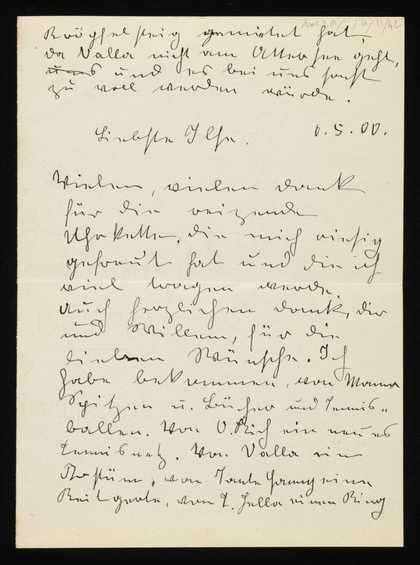 gemietet hat,
da Valla nicht am Attersee geht,
uns und es bei uns sonst
zu voll werden würde.
Liebste Ilse. 1.5.00.
Vielen, vielen dank
für die reizende
Uhrkette, die mich riesig
gefreut hat und die ich
viel tragen werde.
Auch herzlichen dank, dir
und Willem, für die
lieben Wünsche. Ich
habe bekommen, von Mama
Spitzen u. Bücher und Tennis„
ballen. Von O. Rich ein neues
Tennisnetz. Von Valla ein
Kostüm, von Tante Fanny eine
Reitgerte, von T. Hella einen Ring